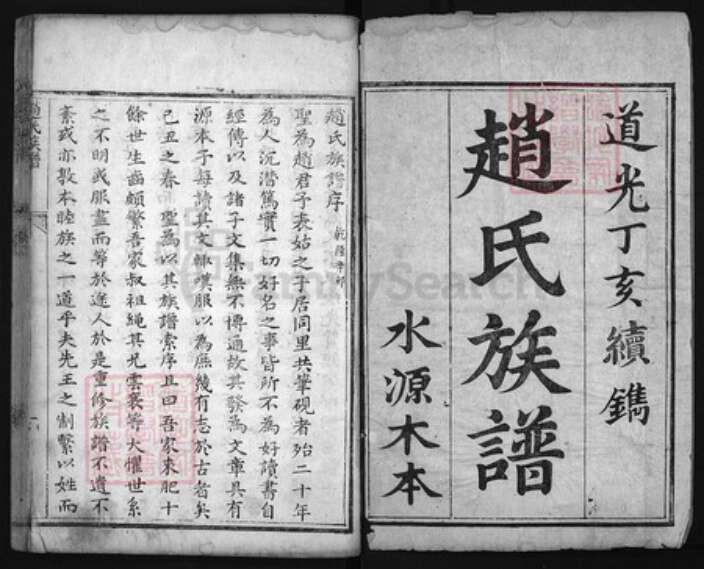 道光丁亥續鐫
趙氏族譜
水源木本
趙氏族譜序
乾隆
聖為趙君予表姑之子居同里共筆硯者殆二十年
為人沉潛篤實一切好名之事皆所不為好讀書自
經傳以及諸子文集無不博通故其發為文章具有
源本予每讀其文輒嘆服以為庶幾有志於古者矣
己丑之春聖為以其族譜索序且曰吾家來肥十
餘世生齒頗繁吾家叔祖繩其兄雲衮等大懼世系
之不明或服盡而等於途人於是重修族譜不遺不
紊或亦敦本睦族之一道乎夫先王之制繫以姓而
趙氏族譜
FamilySearch